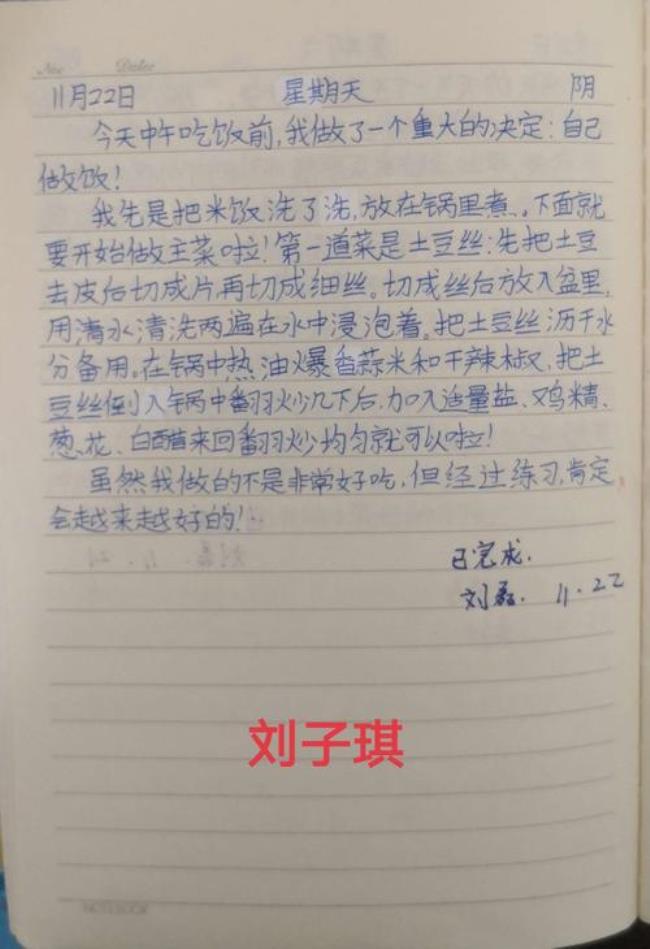 Date
11月22日 星期天 阴
今天中午吃饭前,我做了一个重大的决定:自己
做饭!
我先是把米饭洗了洗,放在锅里煮。下面就
要开始做主菜啦!第一道菜是土豆丝:先把土豆
去皮后切成片,再切成细丝。切成丝后放入盆里,
用清水清洗两遍在水中浸泡着。把土豆丝沥干水
分备用。在锅中热油爆香蒜米和干辣椒,把土
豆丝倒入锅中翻炒几下后,加入适量盐、鸡精、
葱花、白醋来回翻炒均匀就可以啦!
虽然我做的不是非常好吃,但经过练习,肯定
会越来越好的!
已完成.
刘磊. 11.22
刘子琪
NOTEBOOK